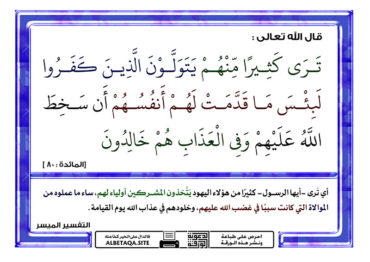 قال الله تعالى :
تَرَى كَثِيرًا مِّنْهُمْ يَتَوَلَّوْنَ الَّذِينَ كَفَرُوا
لَبِئْسَ مَا قَدَّمَتْ لَهُمْ أَنفُسُهُمْ أَن سَخِطَ
اللَّهُ عَلَيْهِمْ وَفِي الْعَذَابِ هُمْ خَالِدُونَ
[المائدة : ٨٠]
أي ترى -أيها الرسول- كثيرًا من هؤلاء اليهود يَتَّخذون المشركين أولياء لهم، ساء ما عملوه من
الموالاة التي كانت سببًا في غضب الله عليهم، وخلودهم في عذاب الله يوم القيامة.
التفسير الميسر
احرص على طباعة
ونشر هذه الورقة
ALBETAQA.SITE